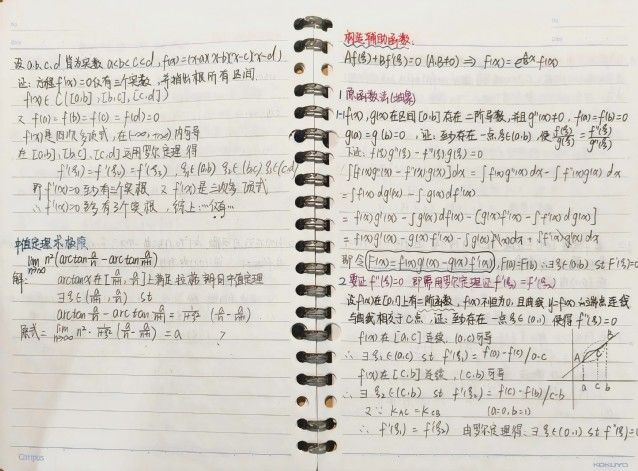 设 a.b.c.d 皆为实数 a<b<c<d, f(x)=(x-a)(x-b)(x-c)(x-d)
证: 方程f'(x)=0仅有三个实数, 并指出根所有区间
f(x)∈C([a,b],[b,c],[c,d])
又 f(a)=f(b)=f(c)=f(d)=0
f(x)是四次多项式, 在(-∞,+∞)内可导
在[a,b],[b,c],[c,d]运用罗尔定理 得
f'(ξ₁)=f'(ξ₂)=f'(ξ₃)=0, ξ₁∈(a,b) ξ₂∈(b,c) ξ₃∈(c,d)
即 f'(x)=0 至少有三个实根 又 f'(x)是三次多项式
∴ f'(x)=0 至多有3个实根, 综上:…仅有…
中值定理求极限
lim n→∞ n²(arctan a/n - arctan a/n+1)
解: arctanx在[a/n+1, a/n]上满足拉格朗日中值定理
∃ξ∈( ) st
arctan a/n - arctan a/n+1 = 1/1+ξ² · (a/n - a/n+1)
原式= lim n→∞ n² · 1/1+ξ² (a/n - a/n+1) = a ?
Campus
构造辅助函数:
Af(ξ)+Bf'(ξ)=0 (A.B≠0) ⇒ F(x)=e^(A/B x) f(x)
1 原函数法(
1-1 f(x), g(x)在区间[a,b]存在二阶导数, 并且g''(x)≠0, f(a)=f(b)=0
g(a)=g(b)=0, 证: 至少存在一点ξ∈(a,b) 使 f(ξ)/g(ξ) = f''(ξ)/g''(ξ)
下证: f(ξ)g''(ξ)-f''(ξ)g(ξ)=0
∫[f(x)g''(x)-f''(x)g(x)]dx = ∫f(x)g''(x)dx - ∫f''(x)g(x)dx
= ∫f(x)dg'(x) - ∫g(x)df'(x)
= f(x)g'(x) - ∫g'(x)df(x) - [g(x)f'(x) - ∫f'(x)dg(x)]
= f(x)g'(x) - g(x)f'(x) - ∫g'f'(x)dx + ∫f'(x)g'(x)dx
即令 F(x)=f(x)g'(x)-g(x)f'(x), F(a)=F(b) ∴∃ξ∈(a,b) st F'(ξ)=0
2 要证f''(ξ)=0 即需用罗尔定理证f'(ξ₁)=f'(ξ₂)
设f(x)在[0,1]上有=所函数, f(x)不恒为0, 且曲线y=f(x)的端点连线
与曲线相交于C点, 证: 至少存在一点ξ∈(0,1) 使得f''(ξ)=0
f(x)在[a,c]连续, (a,c)可导
∴∃ξ₁∈(a,c) st f'(ξ₁)= f(a)-f(c)/a-c
f(x)在[c,b]连续, (c,b)可导
∴∃ξ₂∈(c,b) st f'(ξ₂)= f(c)-f(b)/c-b
又∵ K_AC=K_CB (a=0,b=1)
∴ f'(ξ₁)=f'(ξ₂) 由罗尔定理得: ∃ξ∈(0,1) st f''(ξ)=0
A C B
a c b
KOKUYO